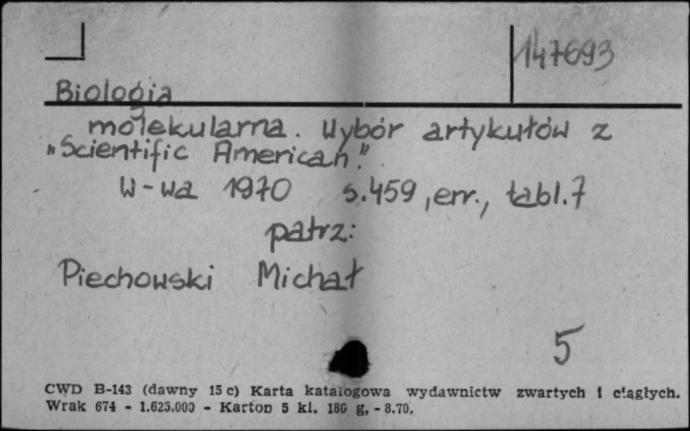 147693
Biologia
molekularna. Wybór artykułów z
"Scientific American".
W-wa 1970 s.459, err., tabl.7
patrz:
Piechowski Michał
5
CWD B-143 (dawny 15 c) Karta katalogowa wydawnictw zwartych i ciągłych.
Wrak 674 - 1.625.000 - Karton 5 kl. 180 g, - 8.70.